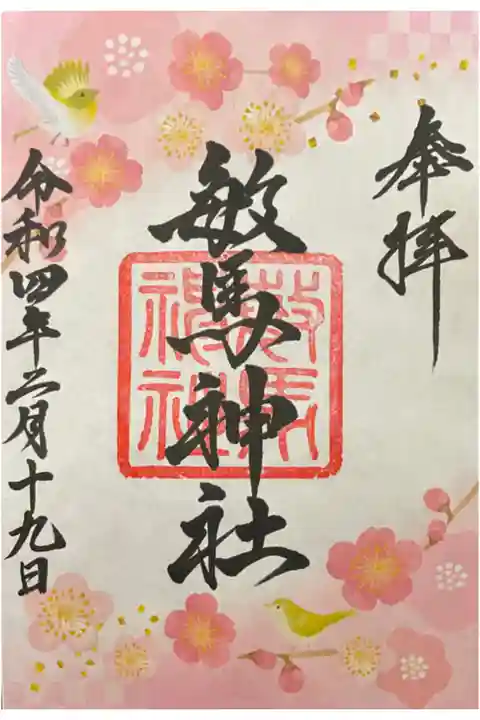 奉拝
敏馬神社
敏馬神社
令和四年二月十九日